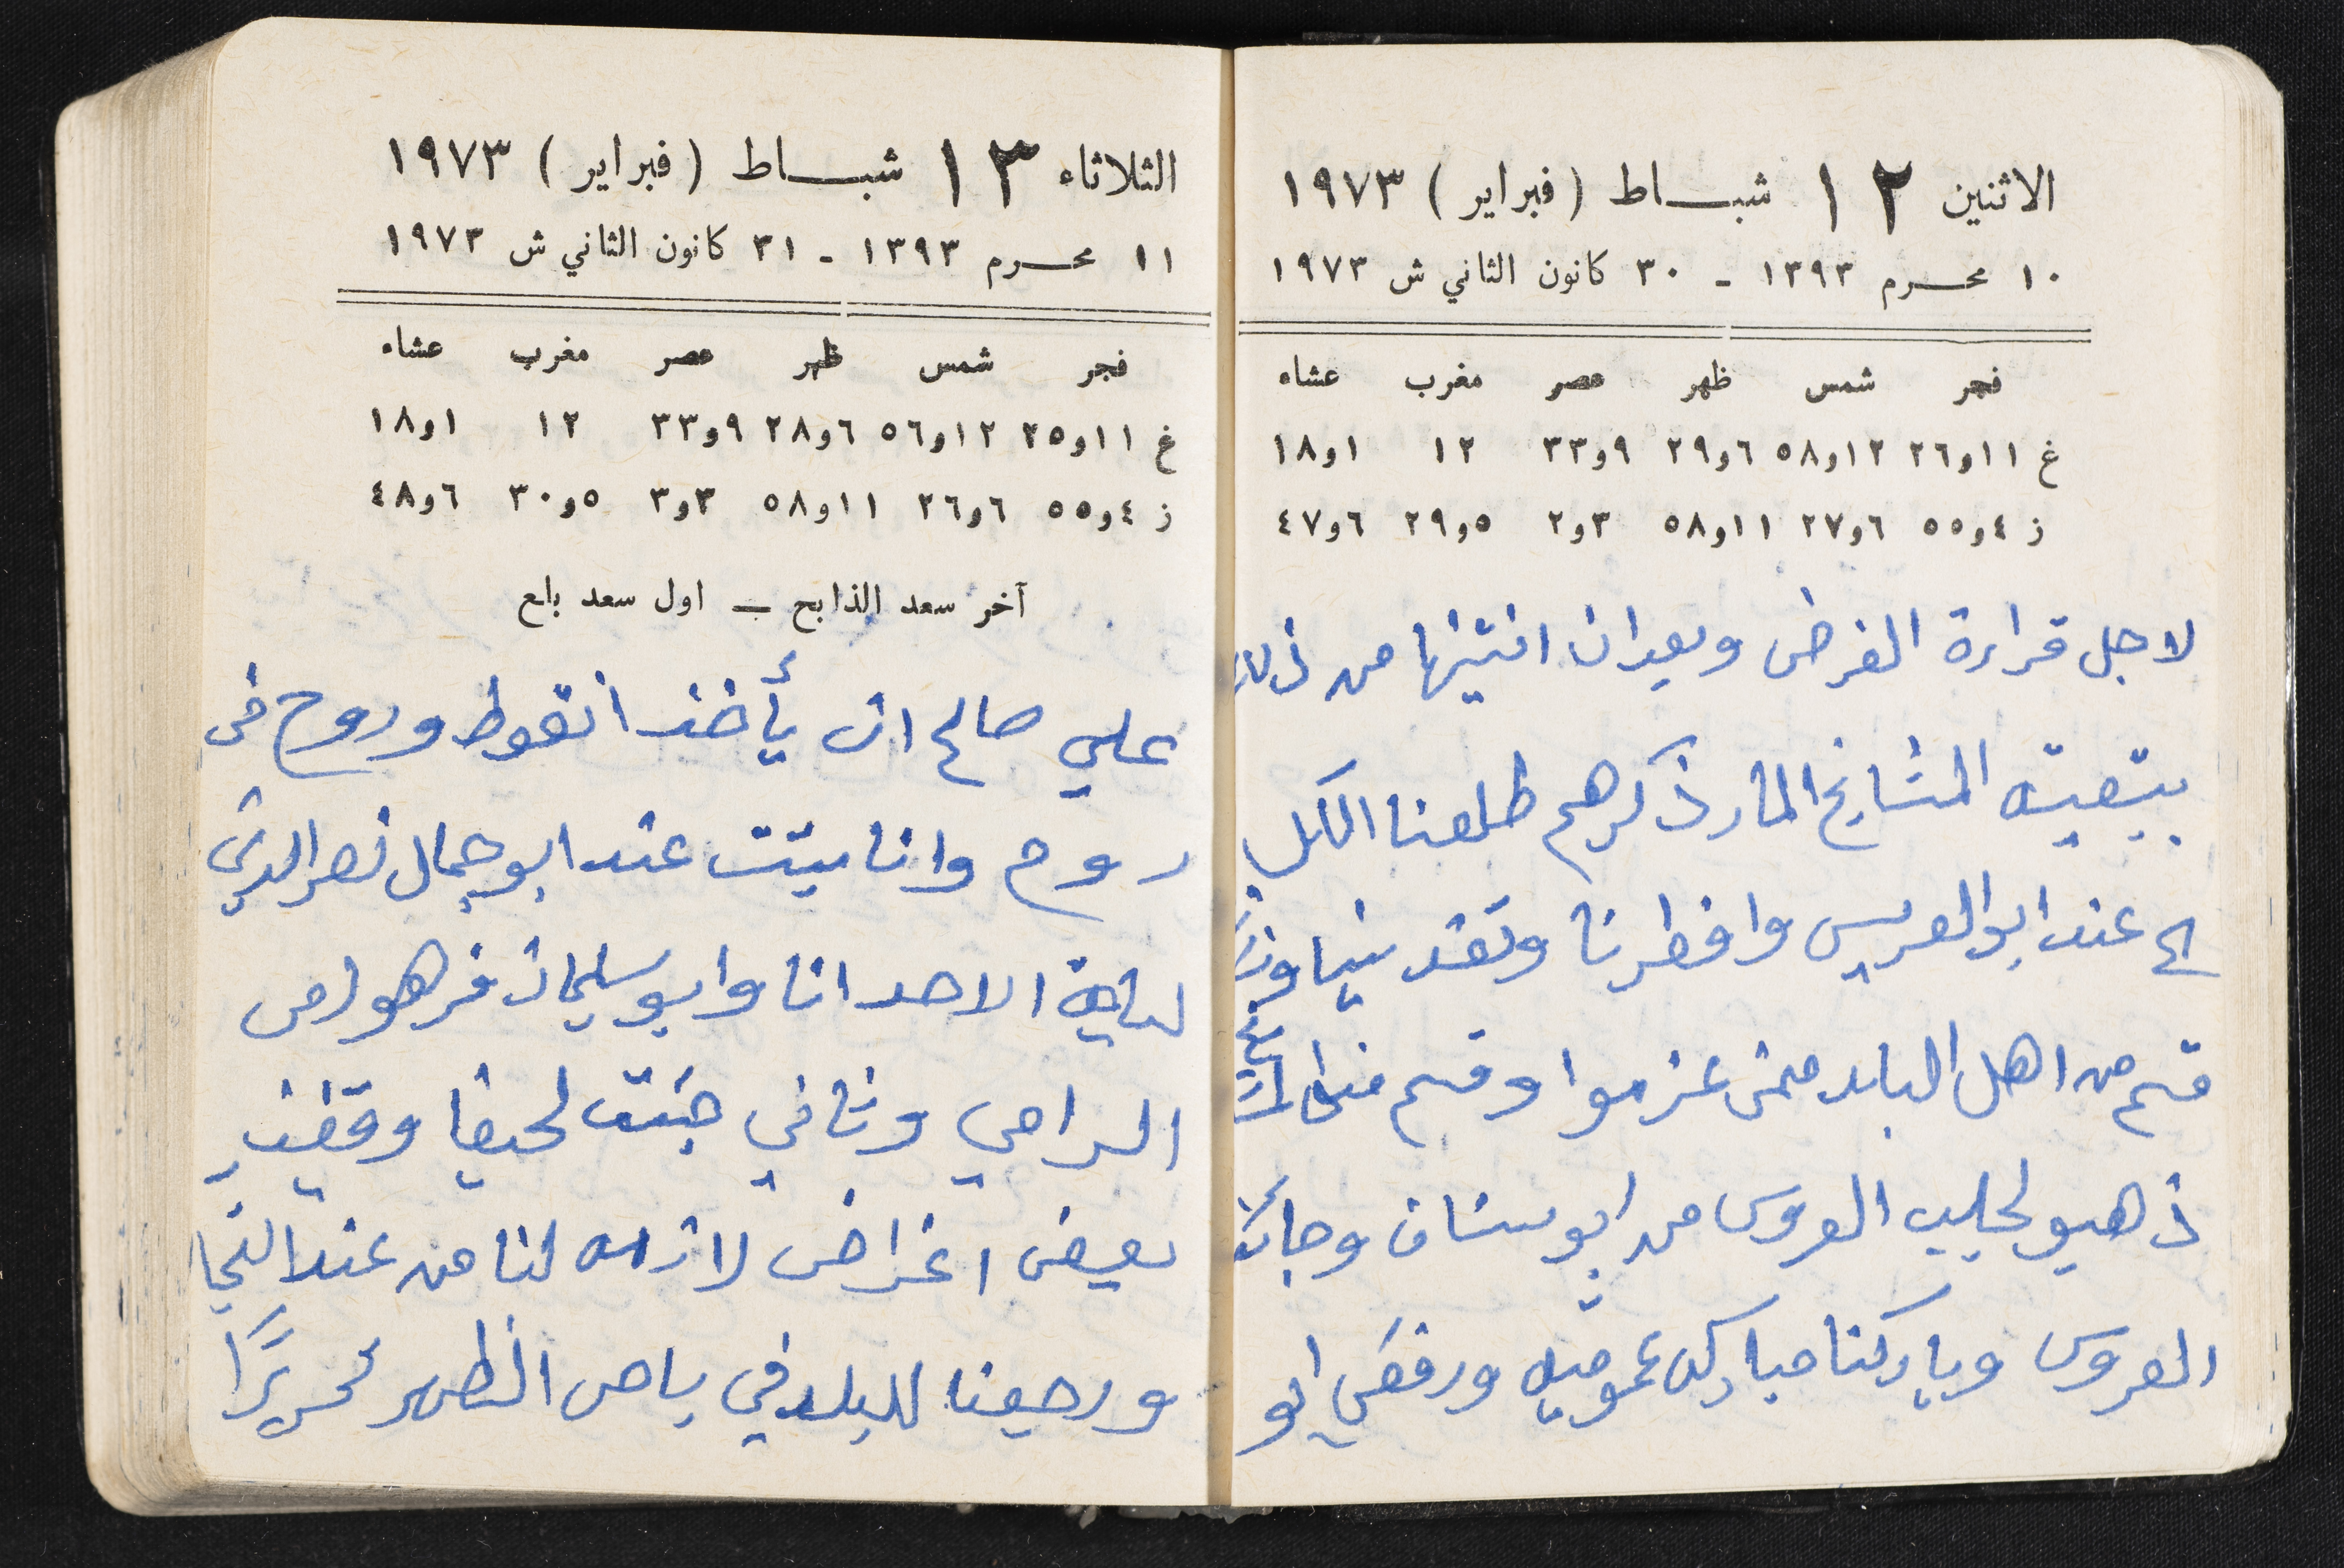 الاثنين ١٢ شباط (فبراير) ١٩٧٣
١٠ محرم ١٣٩٣ - ٣٠ كانون الثاني ش ١٩٧٣
فجر شمس ظهر عصر مغرب عشاء
غ ١١و٢٦ ١٢و٥٨ ٦و٢٩ ٩و٣٣ ١٢ ١و١٨
ز ٤و٥٥ ٦و٢٧ ١١و٥٨ ٣و٢ ٥و٢٩ ٦و٤٧
لاجل قراءة الفرض وبعد ان انتهينا من ذلك
المشايخ المار ذكرهم طلعنا الكل
الى عند ابو العريس وافطرنا وتغدينا
قسم من اهل البلد ممن عزموا وقسم
ذهبو لجليب العروس من ابو سنان وجابت
العروس وباركنا مباركه عموميه ورفض ابو
الثلاثاء ١٣ شباط (فبراير) ١٩٧٣
١١ محرم ١٣٩٣ - ٣١ كانون الثاني ش ١٩٧٣
فجر شمس ظهر عصر مغرب عشاء
غ ١١و٢٥ ١٢و٥٦ ٦و٢٨ ٩و٣٣ ١٢ ١و١٨
ز ٤و٥٥ ٦و٢٦ ١١و٥٨ ٣و٣ ٥و٣٠ ٦و٤٨
آخر سعد الذابح – اول سعد بلع
علي صالح ان يأخذ انقوط وروح في
روح وانا بيتت عند ابو جمال نصر الدين
ليلة الاحد انا وابو سليمان فرهود من
الرامي وثاني جئت لحيفا وقضيت
بعض اغراض لازمه لنا من عند
ورجعنا للبلد في باص الظهر تحريرًا